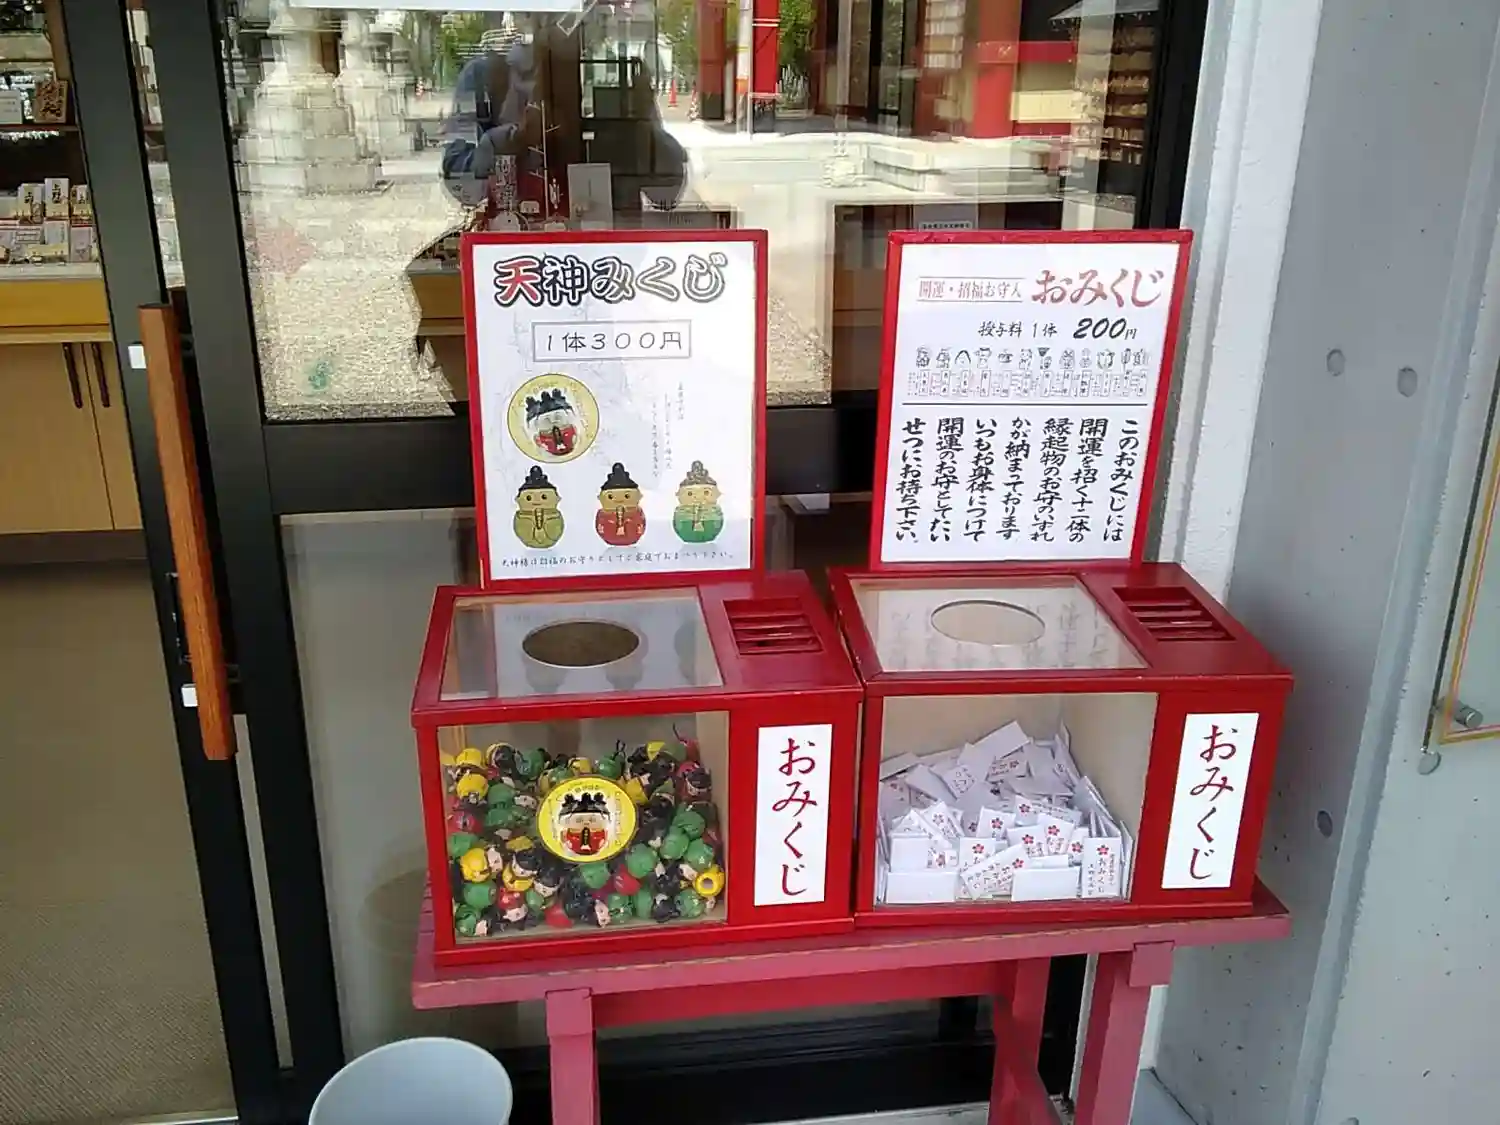 天神みくじ
1体300円
天神様は招福のお守りとしてご家庭でおまつり下さい。
おみくじ
開運・招福お守入 おみくじ
授与料 1体 200円
このおみくじには
開運を招く十二体の
縁起物のお守のいずれ
かが納まっております
いつもお身体につけて
開運のお守としてたい
せつにお持ち下さい。
おみくじ
おみくじ